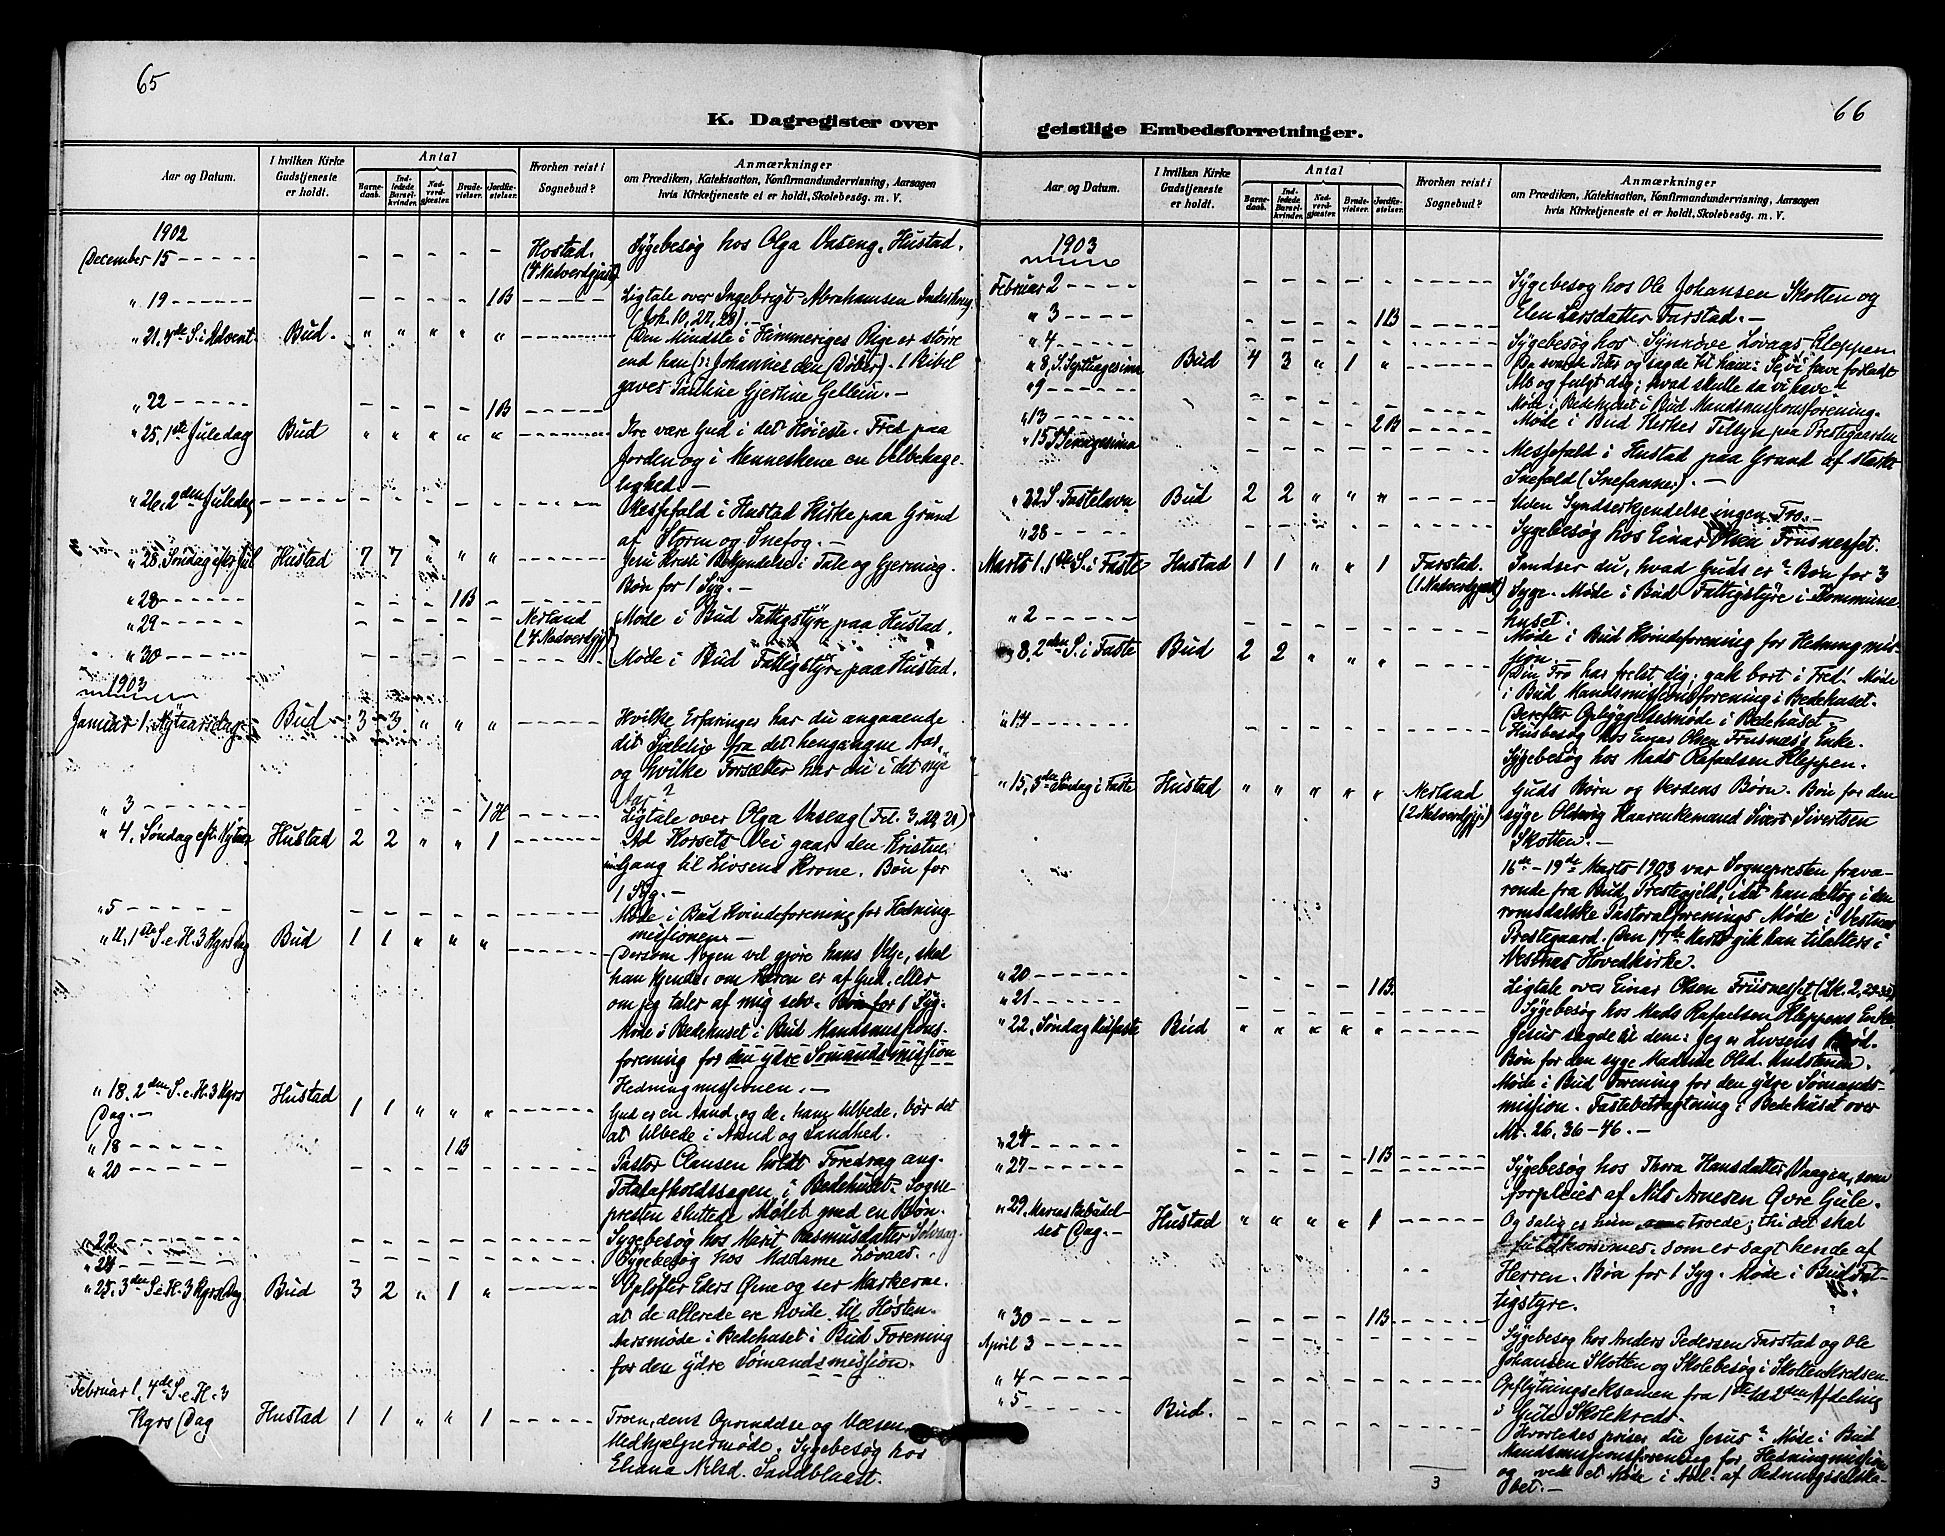 65
K. Dagregister over
Aar og Datum.
I hvilken Kirke Gudstjeneste er holdt.
Antal
Barnedaab.
Indledede Barselkvinder.
Nadverdgjæster.
Brudevielser.
Jordfæstelser.
Hvorhen reist i Sognebud?
Anmærkninger
om Prædiken, Katekisation, Konfirmandundervisning, Aarsagen
hvis Kirketjeneste ei er holdt, Skolebesøg. m. V.
1902
December 15 - - - - - - - - - - Hostad. (4 Nadverdgjæst) Sygebesøg hos Olga Vaseng, Hustad.
" 19 - - - - - - - - - 1 B - - - - - Ligtale over Ingebrigt Abrahamsen
(Joh. 10, 27, 28). -
" 21. 4de S. i Advent. Bud. " " " " " Den Mindste i Himmeriges Rige er større
end han (ɔ: Johannes den Døber). 1 Bibel
gaves Pauline Gjertine Gellein. -
" 22 - - - - - - - - - 1 B
" 25. 1ste Juledag Bud " " " " " - - - - - Ære være Gud i det Høieste. Fred paa
Jorden og i Menneskene en Velbehage-
lighed. -
" 26. 2den Juledag - - - - - - - - - - Messefald i Hustad Kirke paa Grund
af Storm og Snefog. -
" 28. Søndag efter Jul Hustad 7 7 " " " Jesu Kristi Bekjendelse i Tale og Gjerning.
Bøn for 1 Syg. -
" 28 - - - - - - - - 1 B -
" 29 - - - - - - - - - - Nerland (4 Nadverdgj.) Møde i Bud Fattigstyre paa Hustad.
" 30 - - - - - - - - - - Møde i Bud Fattigstyre paa Hustad.
1903
Januar 1. Nytaarsdag - Bud - 3 - 3 " " " - - - - - Hvilke Erfaringer har du angaaende
dit Sjæleliv fra det hengangne Aar,
og hvilke Forsætter har du i det nye
Aar?
" 3 - - - - - - - - - 1 H - - - - - Ligtale over Olga Vaseng (Fil. 3, 20, 21)
" 4. Søndag eft. Nytaar Hustad 2 2 " " 1 - - - - - Ad Korsets Vei gaar den Kristne
Gang til Livsens Krone. Bøn for
1 Syg. -
" 5 - - - - - - - - - - Møde i Bud Kvindeforening for Hedning-
missionen. -
" 11. 1ste S. e. H. 3 Kgrs Dag Bud 1 1 " " " - - - - - Dersom Nogen vil gjøre hans Vilje, skal
han kjende, om Læren er af Gud, eller
om jeg taler af mig selv. Bøn for 1 Syg.
Møde i Bedehuset i Bud Mandsmissions-
forening for den ydre Sømandsmission
Hedningmissionen. -
" 18. 2den S. e. H. 3 Kgrs Dag. - Hustad 1 1 " " " - - - - - Gud er en Aand, og de, ham tilbede, bør det
at tilbede i Aand og Sandhed.
" 18 - - - - - 1 B
" 20 - - - - - - - - - - Pastor Clausen holdt Foredrag ang.
Totalafholdssagen i Bedehuset. Sogne-
presten sluttede Mødet med en Bøn.
" 22 - - - - - - - - - - Sygebesøg hos Marit Rasmusdatter Solvaag.
" 24 - - - - - - - - - - Sygebesøg hos Madame Lovaas.
" 25. 3den S. e. H. 3 Kgrs Dag. Bud 3 2 " 1 " - - - - - Opløfter Eders Øine og ser Markerne,
at de allerede ere hvide til Høsten.
Aarsmøde i Bedehuset i Bud Forening
for den ydre Sømandsmission.
Februar 1. 4de S. e. H. 3 Kgrs Dag Hustad 1 1 " " 1 - - - - - Troen, dens Oprindelse og Væsen.
Medhjælpermøde. Sygebesøg hos
Eliana Nilsd. Sandblaast.
66
geistlige Embedsforretninger.
Aar og Datum.
I hvilken Kirke Gudstjeneste er holdt.
Antal
Barnedaab.
Indledede Barselkvinder.
Nadverdgjæster.
Brudevielser.
Jordfæstelser.
Hvorhen reist i Sognebud?
Anmærkninger
om Prædiken, Katekisation, Konfirmandundervisning, Aarsagen
hvis Kirketjeneste ei er holdt, Skolebesøg. m. V.
1903
Februar 2 - - - - - - - - - - Sygebesøg hos Ole Johansen Skotten og
" 3 - - - - - - - - - 1 B - - - - - Elen Larsdatter Farstad. -
" 4 - - - - - - - - - - Sygebesøg hos Synnøve Lovaas Kleppen
" 8. S. Septuagesima Bud 4 3 " 1 " Da svarede Peter og sagde til ham: Se, vi have forladt
" 9 - - - - - Alt og fulgt dig; hvad skulle da vi have?
Møde i Bedehuset i Bud Mandsmissionsforening.
" 13 - - - - - - - - - 2 B - - - - - Møde i Bud Kirkes Tilsyn paa Prestegaarden
" 15 S. Sexagesima - - - - - Messefald i Hustad paa Grund af stærkt
Snefald (Snefanner). -
" 22 S. Fastelavn Bud 2 2 " " " - - - - - Uden Syndserkjendelse ingen Tro. -
" 28 - - - - - Sygebesøg hos Einar Olsen Frusnesset.
Marts 1. 1ste S. i Faste Hustad 1 1 " " 1 Farstad. (1 Nadverdgjæst) Sandser du, hvad Guds er? Bøn for 3
Syge. Møde i Bud Fattigstyre i Kommune-
huset.
" 2 - - - - - - - - - - Møde i Bud Kvindeforening for Hedningmis-
sion.
" 8. 2den S. i Faste Bud 2 2 " " " - - - - - Din Tro har frelst dig; gak bort i Fred. Møde
i Bud Mandsmissionsforening i Bedehuset.
Derefter Opbyggelsesmøde i Bedehuset. -
" 14 - - - - - - - - - - Husbesøg hos Einar Olsen Frusnæs's Enke.
Sygebesøg hos Mads Rafaelsen Kleppen.
" 15. 3die Søndag i Faste Hustad " " " " " Nerland (2 Nadverdgj.) Guds Børn og Verdens Børn. Bøn for den
syge Sivert Sivertsen
Skotten. -
16de - 19de Marts 1903 var Sognepresten fravæ-
rende fra Bud Prestegjeld, idet han deltog i den
romsdalske Pastoralforenings Møde i Vestnes
Prestegaard. Den 17de Marts gik han tilalters i
Vestnes Hovedkirke.
" 20 - - - - - - - - - 1 B. - - - - - Ligtale over Einar Olsen Frusnesset (Lk. 2, 29-32)
" 21 - - - - - - - - - - Sygebesøg hos Mads Rafaelsen Kleppens Enke
" 22. Søndag Midfaste Bud " " " " " - - - - - Jesus sagde til dem: Jeg er Livsens Brød.
Bøn for den syge Madme Old.
Møde i Bud Forening for den ydre Sømands-
mission. Fastebetragtning i Bedehuset over
Mt. 26, 36-46. -
" 24 - - - - - - - - - 1 B
" 27 - - - - - - - - - - Sygebesøg hos Thora Hansdatter Vaagen, som
forpleies af Nils Arnesen Øvre Gule.
" 29. Mariæ Bebudelses Dag. - Hustad " " " " 1 - - - - - Og salig er hun, som troede; thi det skal
fuldkommes, som er sagt hende af
Herren. Bøn for 1 Syg. Møde i Bud Fat-
tigstyre.
" 30 - - - - - - - - - 1 B
April 3 - - - - - - - - - - Sygebesøg hos Anders Pedersen Farstad og Ole
Johansen Skotten og Skolebesøg i Skotten Kredsen.
" 4 - - - - - - - - - - Opflytningseksamen fra 1ste til 2den Afdeling
i Gule Skolekreds.
" 5 Bud. - - - - - Hvorledes priser du Jesus? Møde i Bud
Mandsmissionsforening for Hedningmission
og ved et Møde i Anl. af Redningsselska-
bet. -
3